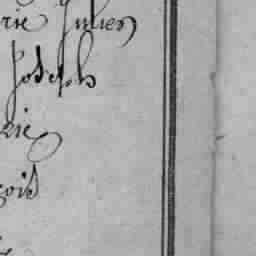 rie Julien
Joseph
rie
çois